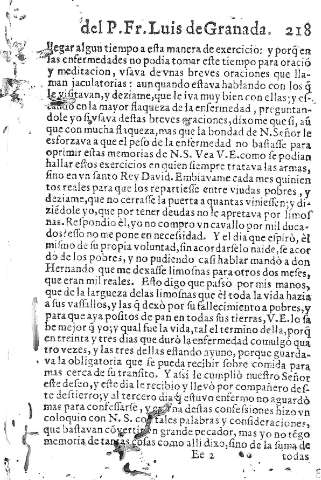 del P. Fr. Luis de Granada. 218
llegar algun tiempo a esta manera de exercicio: y porq̃ en
las enfermedades no podia tomar este tiempo para oració
y meditacion, vsava de vnas breves oraciones que lla-
man jaculatorias: aun quando estava hablando con los q̃
le visitavan, y deziame, que le iva muy bien con ellas; y es-
tando en la mayor flaqueza de la enfermedad, preguntan-
dole yo si vsava destas breves oraciones, dixome que si, aũ
que con mucha flaqueza, mas que la bondad de N. Señor le
esforzava a que el peso de la enfermedad no bastasse para
oprimir estas memorias de N. S. Vea V. E. como se podian
hallar estos exercicios en quien siempre tratava las armas,
sino en vn santo Rey David. Embiavame cada mes quinien
tos reales para que los repartiesse entre viudas pobres, y
deziame, que no cerrasse la puerta a quantas viniessen; y di-
ziédole yo, que por tener deudas no le apretava por limos
nas. Respondiò èl, yo no compro vn cavallo por mil duca-
dos? esso no me pone en necessidad. Y el dia que espirò, èl
mismo de su propia voluntad, sin acordarselo nadie, se acor
dò de los pobres, y no pudiendo casi hablar mandò a don
Hernando que me dexasse limosnas para otros dos meses,
que eran mil reales. Esto digo que passò por mis manos,
que de la largueza de las limosnas que èl toda la vida hazia
a sus vassallos, y las q̃ dexò por su fallecimiento a pobres, y
para que aya positos de pan en todas sus tierras, V. E. lo sa
be mejor q̃ yo; y qual fue la vida, tal el termino della, porq̃
en treinta y tres dias que durò la enfermedad comulgò qua
tro vezes, y las tres dellas estando ayuno, porque guarda-
va la obligatoria que se pueda recibir sobre comida para
mas cerca de su transito. Y assi le cumpliò nuestro Señor
este deseo, y este dia le recibio y llevò por compañero des-
te destierro; y al tercero dia q̃ estuvo enfermo no aguardò
mas para confessarse, y en vna destas confessiones hizo vn
coloquio con N. S. con tales palabras y consideraciones,
que bastavan cõvertir vn grande pecador, mas yo no tégo
memoria de tantas cosas como alli dixo, sino de la suma de
Ee 2 todas